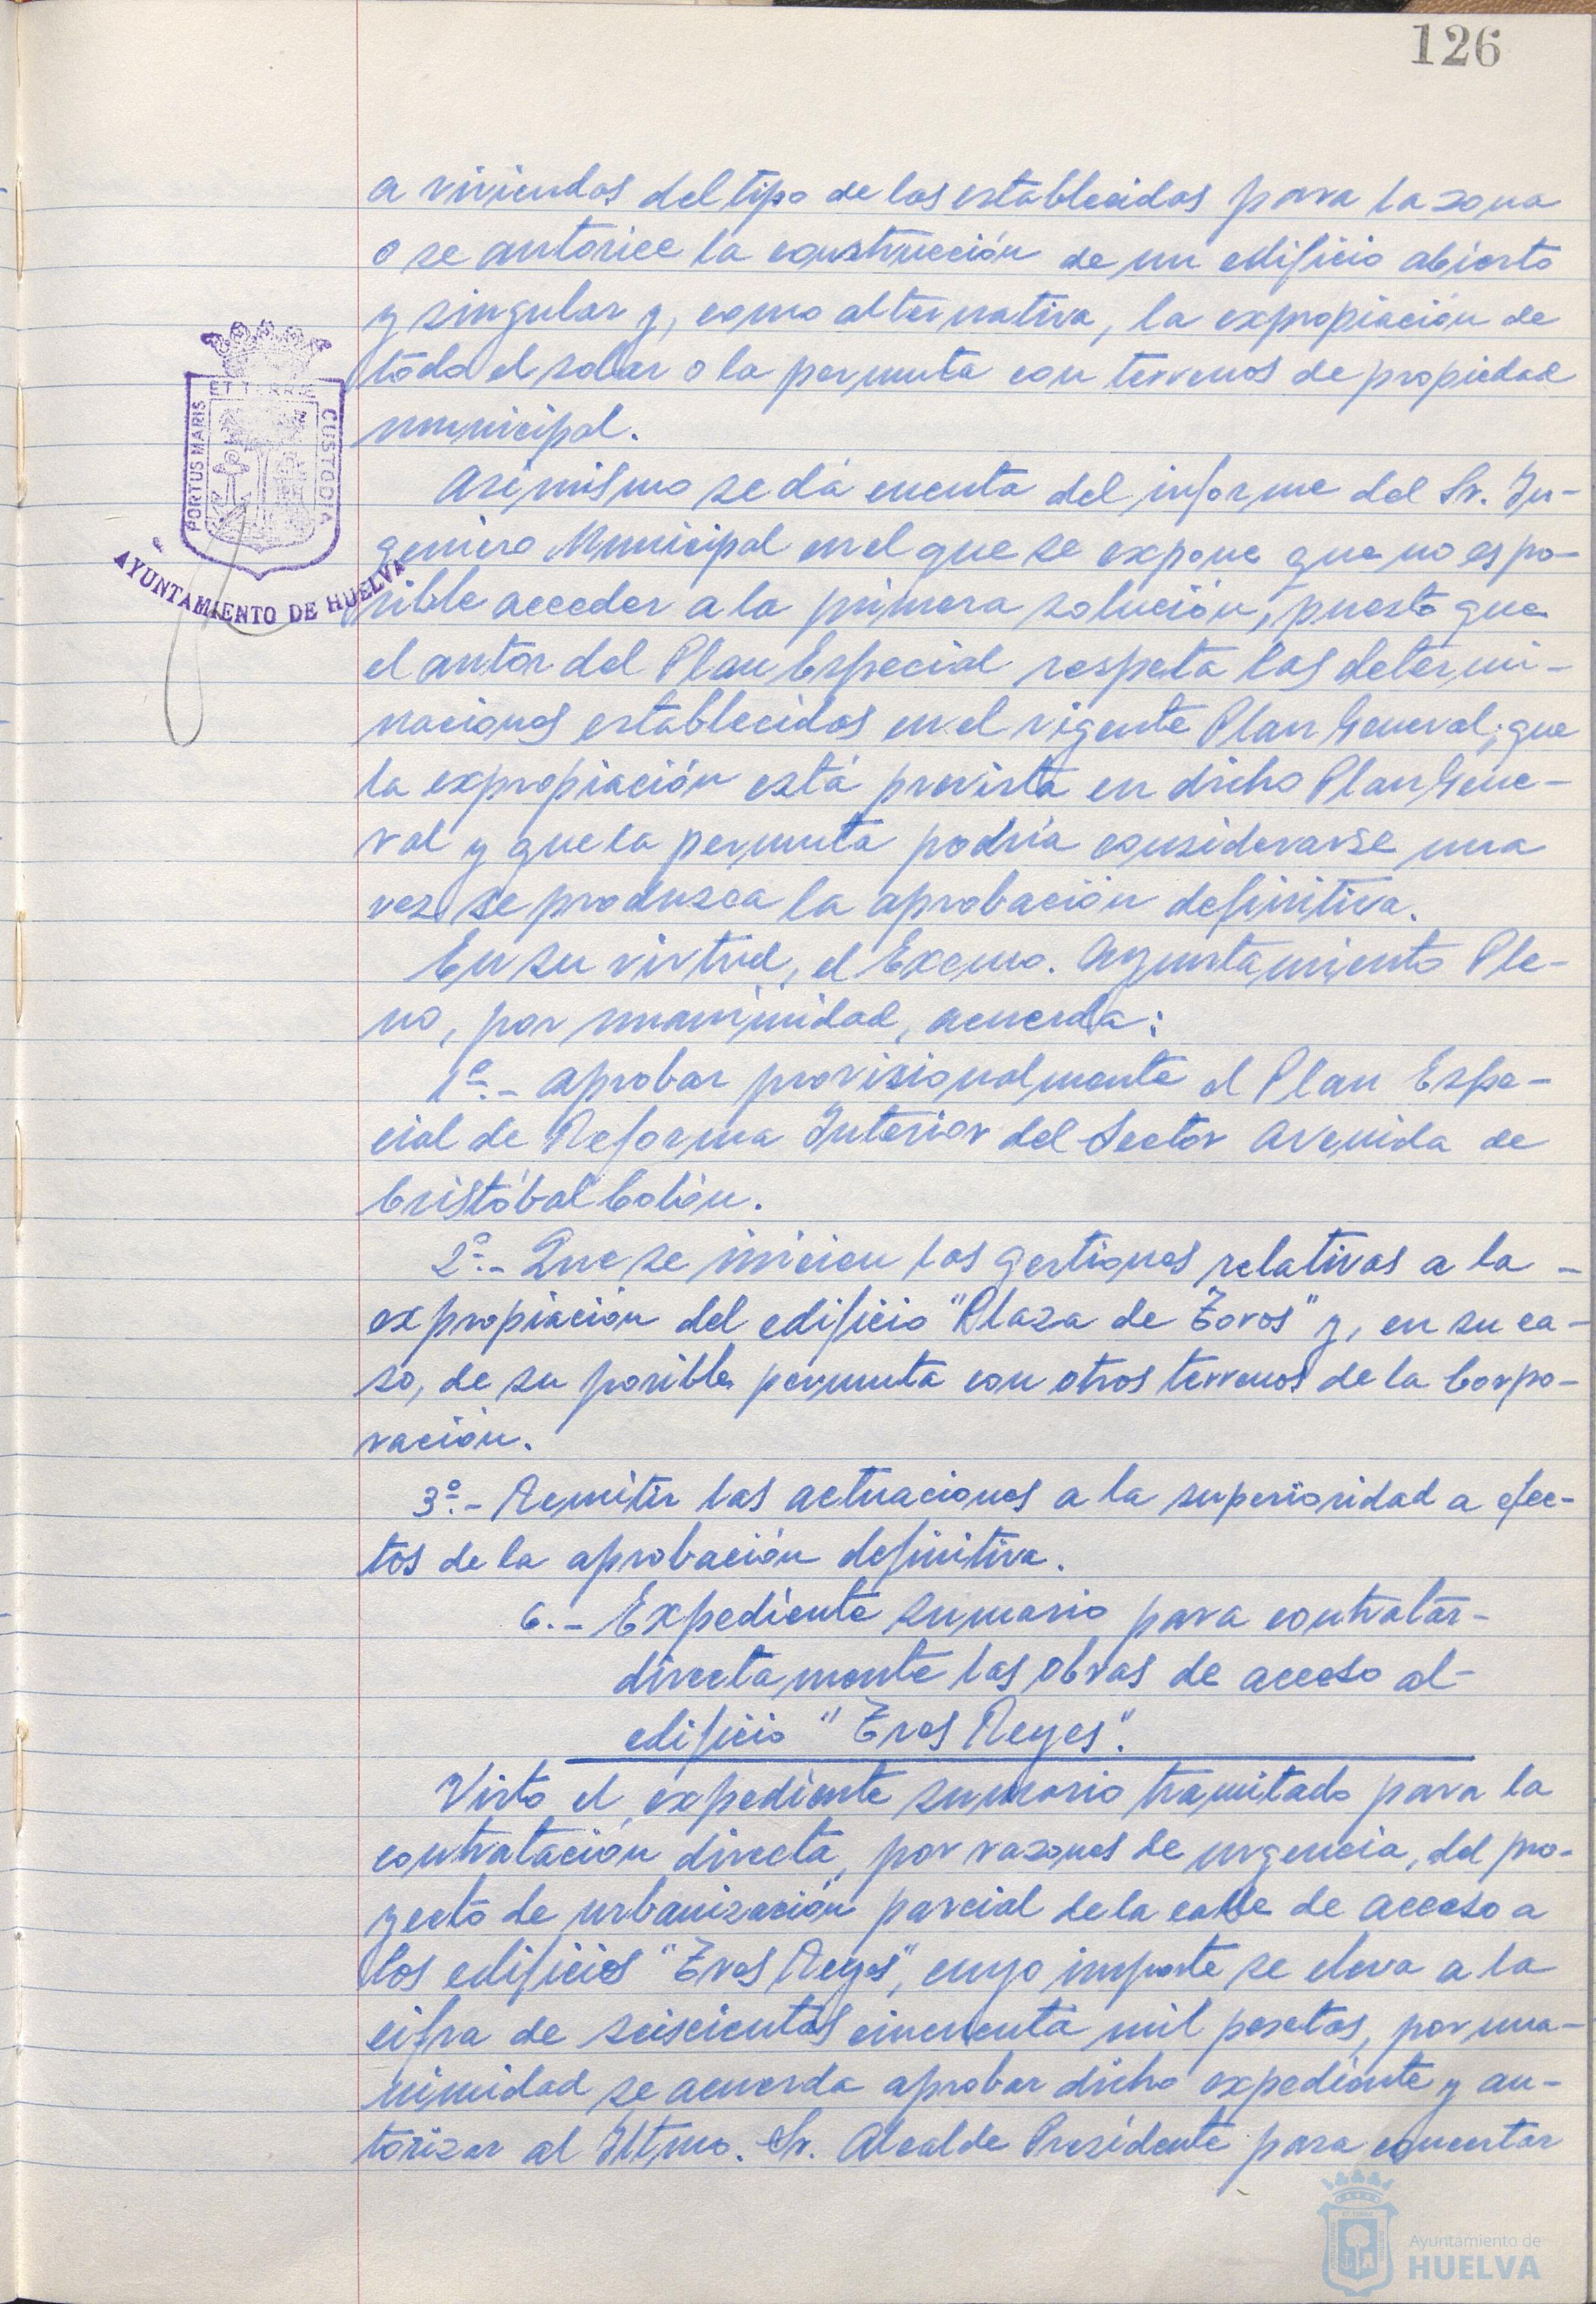 126
a viviendas del tipo de las establecidas para la zona
o se autorice la construcción de un edificio abierto
y singular y, como alternativa, la expropiación de
todo el solar o la permuta con terrenos de propiedad
municipal.
Asimismo se dá cuenta del informe del Sr. In-
geniero Municipal en el que se expone que no es po-
sible acceder a la primera solución, puesto que
el autor del Plan Especial respeta las determi-
naciones establecidas en el vigente Plan General; que
la expropiación está prevista en dicho Plan Gene-
ral y que la permuta podría considerarse una
vez se produzca la aprobación definitiva.
En su virtud, el Excmo. Ayuntamiento Ple-
no, por unanimidad, acuerda:
1º.- Aprobar provisionalmente el Plan Espe-
cial de Reforma Interior del Sector Avenida de
Cristóbal Colón.
2º.- Que se inicien las gestiones relativas a la -
expropiación del edificio "Plaza de Toros" y, en su ca-
so, de su posible permuta con otros terrenos de la Corpo-
ración.
3º.- Remitir las actuaciones a la superioridad a efec-
tos de la aprobación definitiva.
6.- Expediente sumario para contratar-
directamente las obras de acceso al-
edificio "Tres Reyes".
Visto el expediente sumario tramitado para la
contratación directa, por razones de urgencia, del pro-
yecto de urbanización parcial de la calle de acceso a
los edificios "Tres Reyes", cuyo importe se eleva a la
cifra de seiscientas cincuenta mil pesetas, por una-
nimidad se acuerda aprobar dicho expediente y au-
torizar al Iltmo. Sr. Alcalde Presidente para concertar
PORTUS MARIS
ET TERRE
CUSTODIA
AYUNTAMIENTO DE HUELVA
Ayuntamiento de
HUELVA